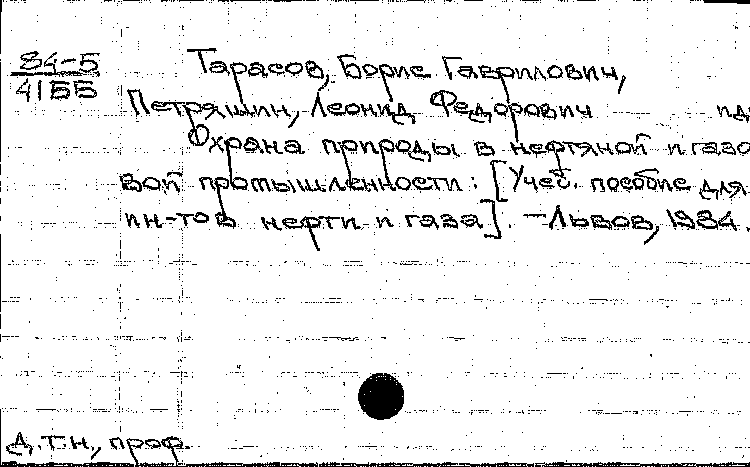 84-5
4155
Тарасов, Борис Гаврилович,
Петряшин, Леонид Федорович
Охрана природы в нефтяной и газо
вой промышленности: [Учеб. пособие для
ин-тов нефти и газа]. – Львов, 1984.
Д.т.н., проф.